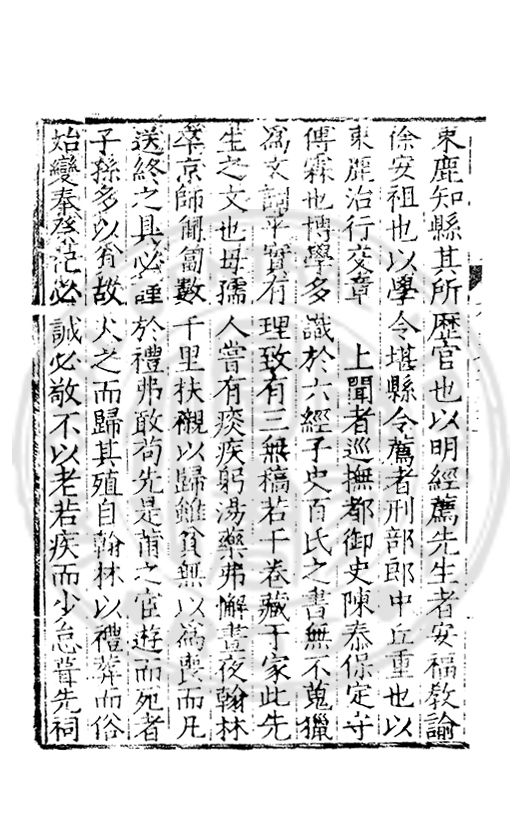 東鹿知縣其所歷官也以明經薦先生者安福教諭
徐安祖也以學令堪縣令薦者刑部郎中丘重也以
東鹿治行交章　上聞者巡撫都御史陳泰保定守
傅霖也博學多識於六經子史百氏之書無不蒐獵
為文詞平實有理致有三無稿若干卷藏于家此先
生之文也母孺人嘗有痰疾躬湯藥弗懈晝夜翰林
卒京師匍匐數千里扶櫬以歸雖貧無以為喪而凡
送終之具必誣於禮弗敢苟先是莆之宦遊而死者
子孫多以貧故火之而歸其殖自翰林以禮葬而俗
始變奉祭祀必誠必敬不以老若疾而少怠葺先祠